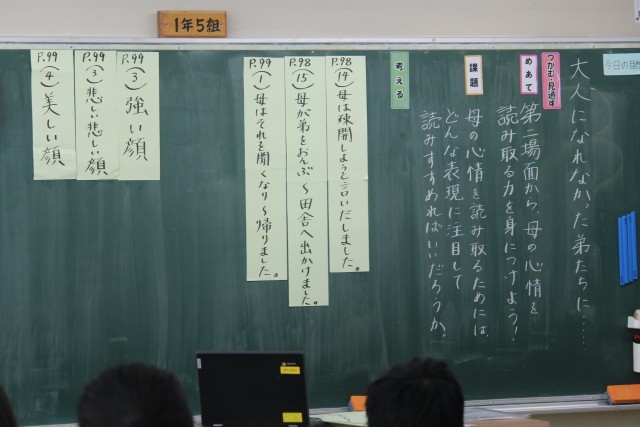 1年5組
今日の目標
大人になれなかった弟たちに……
つかむ・見通す
めあて
第二場面から、母の心情を
読み取る力を身につけよう!
課題
母の心情を読み取るためには、
どんな表現に注目して
読みすすめればいいだろうか?
考える
P.98(14)母は疎開しようと言いだしました。
P.98(15)母が弟をおんぶ〜田舎へ出かけました。
P.99(1)母はそれを聞くなり〜帰りました。
P.99(3)強い顔
P.99(3)悲しい悲しい顔
P.99(4)美しい顔